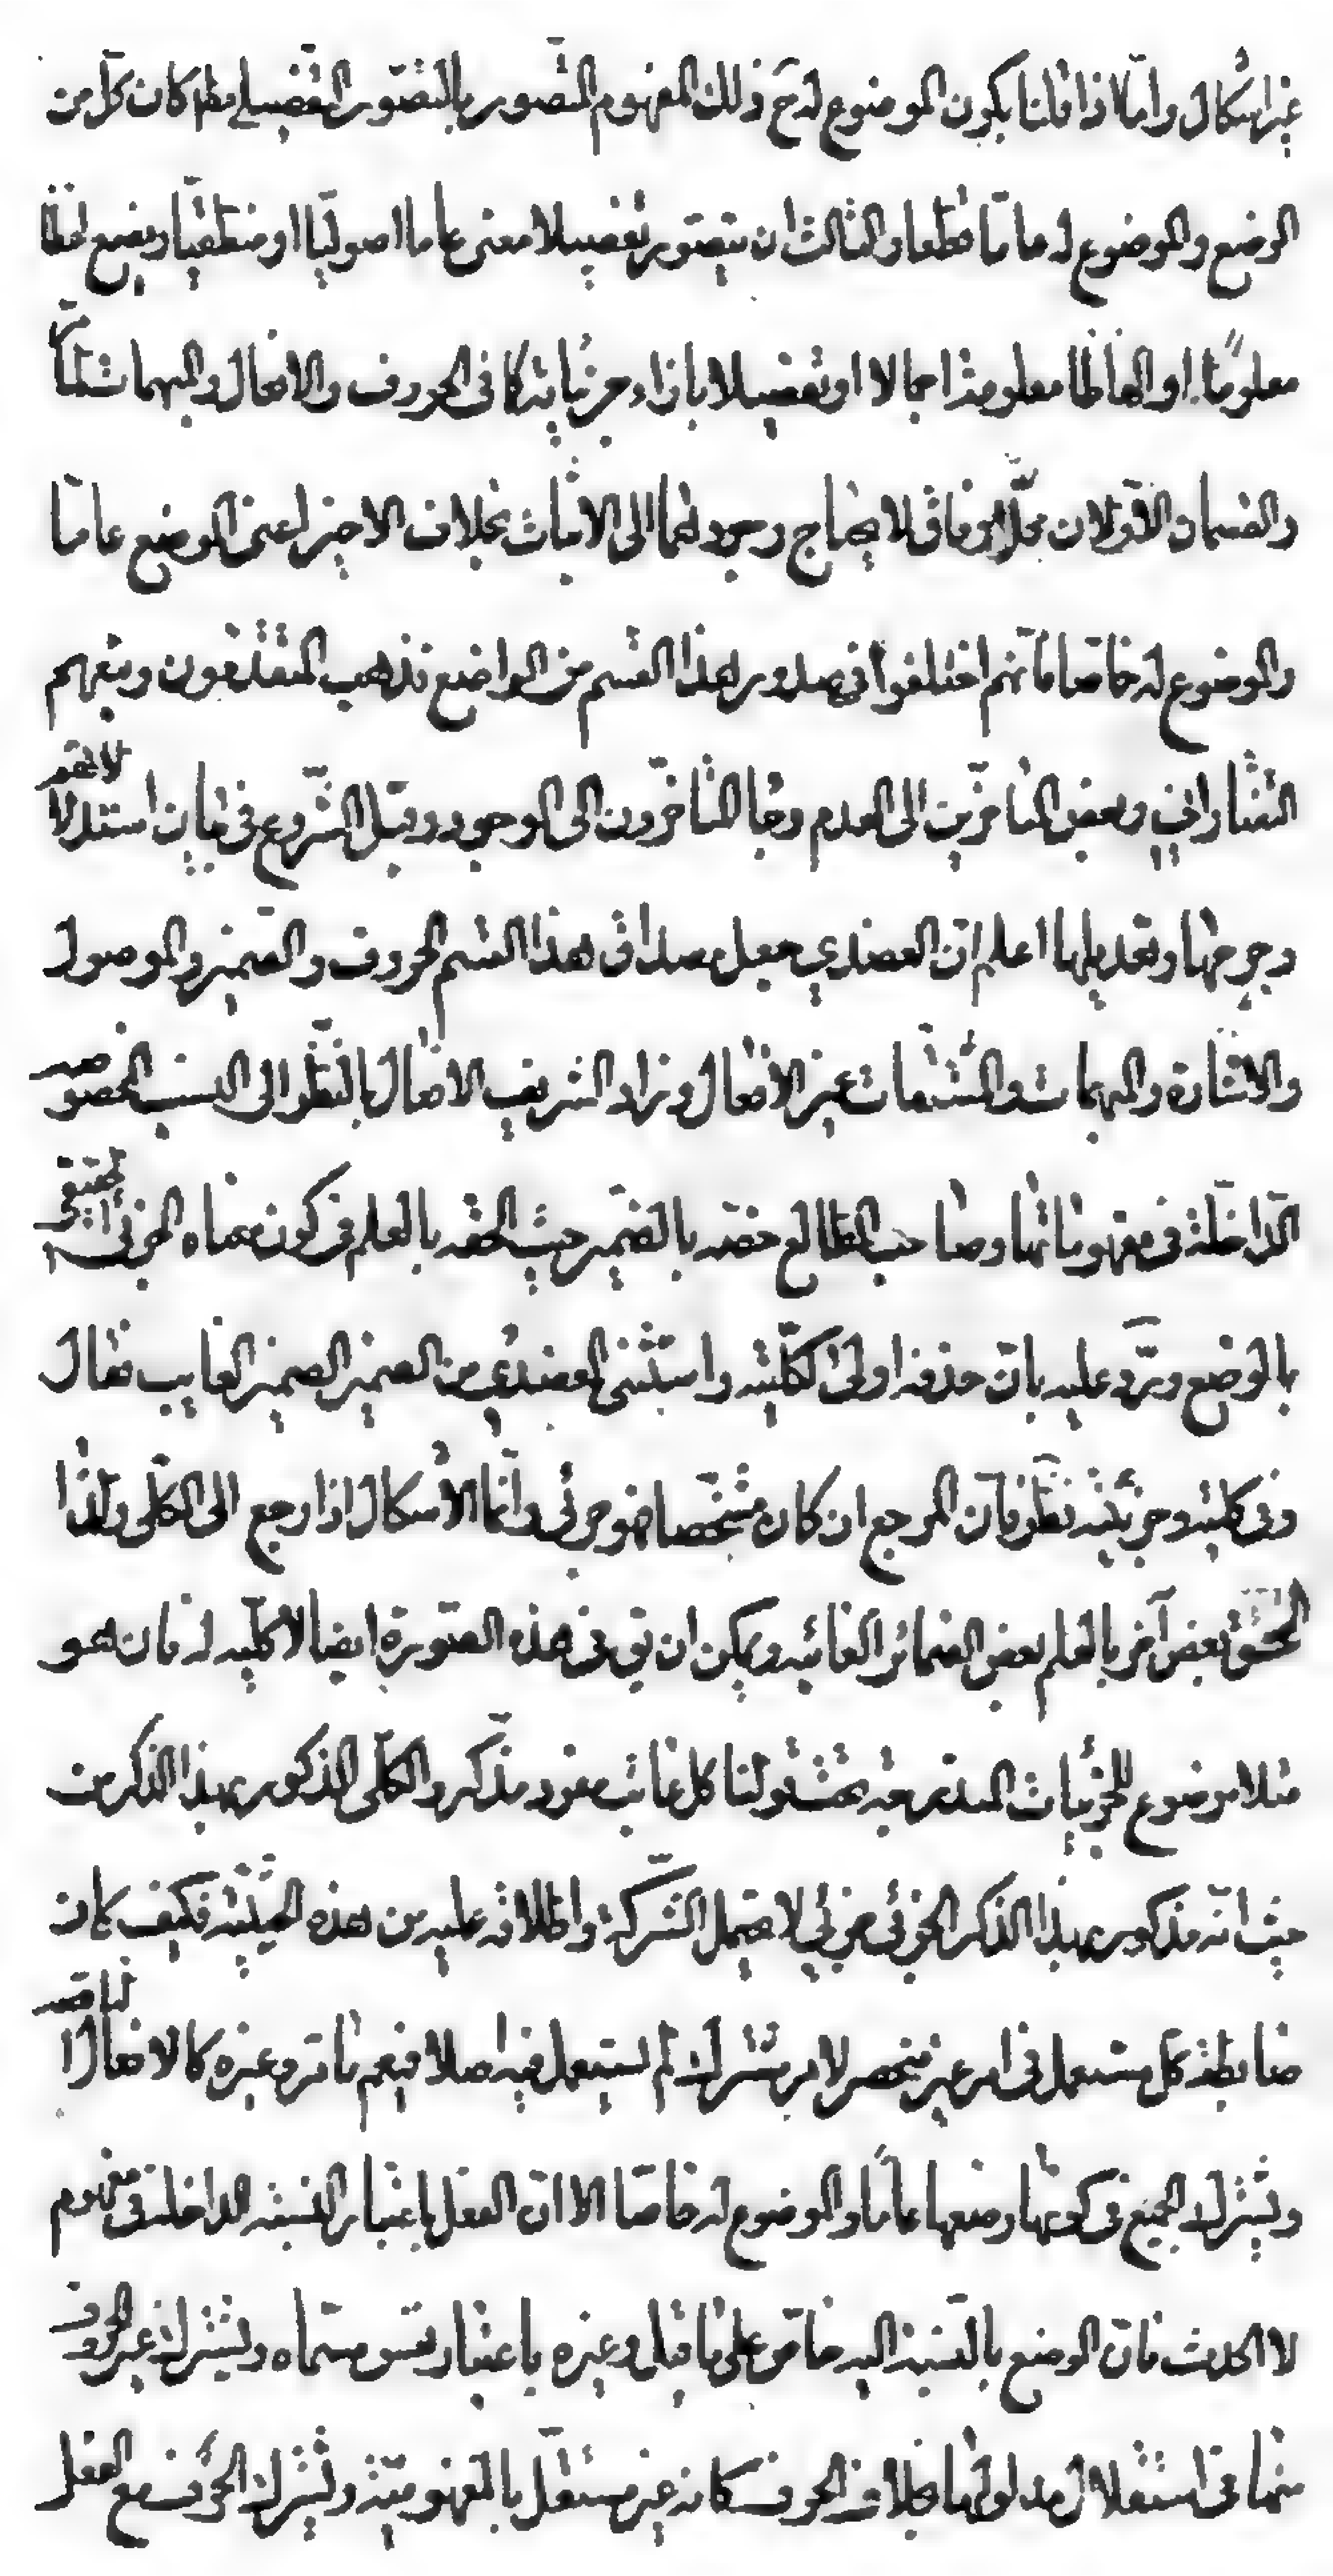 غير اشكال واما اذا قلنا بكون الموضوع له ح ذلك المفهوم المتصور بالتصور التفصيلي فلما كان كل من
الوضع والموضوع له عامّا قطعا والثالث ان يتصور تفصيلا معنى عاما اصوليّا او منطقيّا ويضع لفظا
معلومًا او الفاظا معلومة اجمالا او تفصيلا بازاء جزئياته كما في الحروف والافعال والمبهمات
والقسمان الاوّلان محل وفاق لا يحتاج وجودهما الى الاثبات بخلاف الاخير اعنى الوضع عامّا
والموضوع له خاصا فانّهم اختلفوا في صدور هذا القسم من الواضع فذهب المتقدّمون ومنهم
التفتازاني وبعض المتاخّرين الى العدم وجا المتاخّرون الى الوجود وقبل الشّروع في بيان استدلالاتهم
وجرحها وتعديلها اعلم انّ العضدي جعل مصداق هذا القسم الحروف والضّمير والموصول
والاشارة والمبهمات والمشتقّات غير الافعال وزاد الشريف الافعال بالنّظر الى النسب المخصوصه
الدّاخلة في مفهوماتها وصاحب الطالع خصّه بالضّمير حيث الحقه بالعلم في كون معناه الجزئى الحقيقى
بالوضع ويرّد عليه بانّ حذفه اولى لكلّيّته واستثنى العضدي من الضمير الضمير الغايب فقال
وفى كليته وجزئيّته نظر فانّ المرجع ان كان مشخّصا فهو جزئي وانّما الاشكال اذا رجع الى الكلّى ولذا
الحق بعض آخر بالعلم بعض الضمائر الغائبه ويمكن ان يق في هذه الصّورة ايضا لا كلّيه له فان هو
مثلا موضوع للجزئيات المندرجة تحت قولنا كل غائب مفرد مذكّر والكلّى المذكور بهذا الذكر من
حيث انّه مذكور بهذا الذكر الجزئي جزئي لا يحتمل الشّركة واطلاقه عليه من هذه الحيثيّة فكيف كان
ضابطه كل مستعمل في امر غير منحصر لامر مشترك لم يستعمل فيه اصلا فيعم ما مرّ وغيره كالافعال النّاقصه
ويشترك الجميع في كونها وضعها عامّا والموضوع له خاصّا الا ان الفعل باعتبار النسبة الداخلة في مفهوم
لا الحدث فانّ الوضع بالنّسبة اليه خاصّ على ما قيل وغيره باعتبار نفس مسمّاه ويشترك غير الحروف
منها في استقلال مدلولها بخلاف الحروف كانه غير مستقلّ بالمفهوميّة ويشترك الحروف مع الفعل